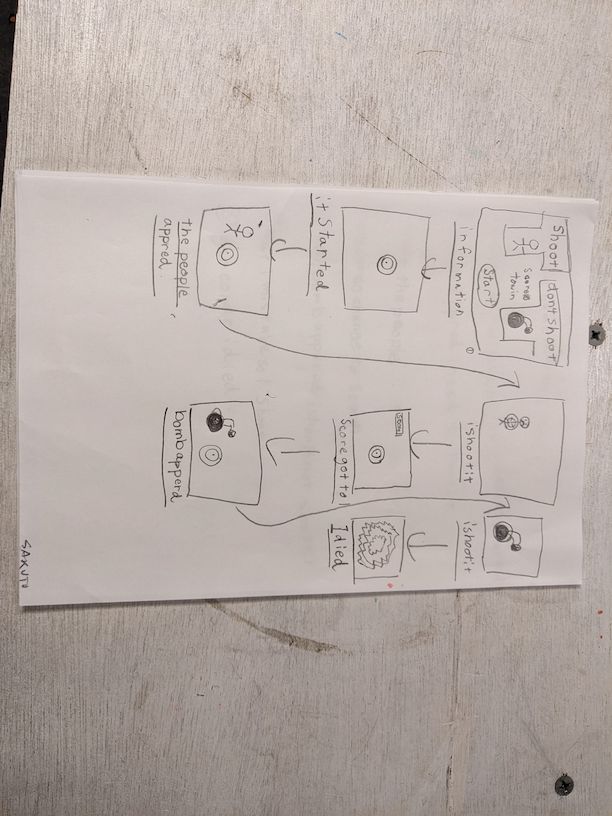 shoot dont shoot
score 8
to win
start
information
it started
the people
appred.
ishootit
score got to 1
bomb apperd
ishootit
I died
SAKUTO